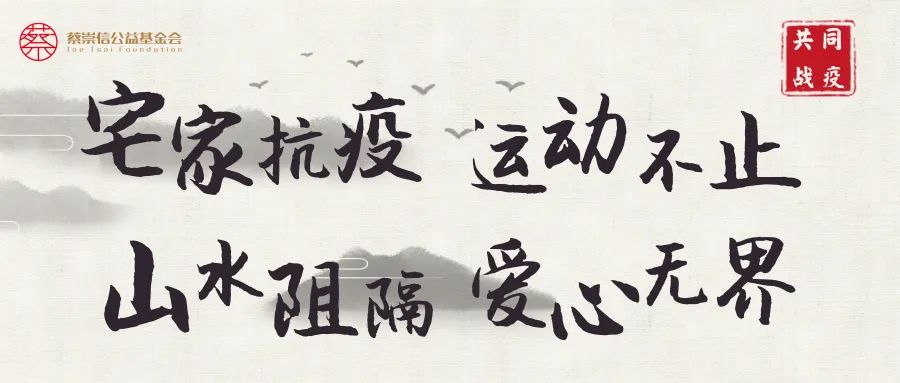 蔡
蔡崇信公益基金会
Joe Tsai Foundation
共同
战疫
宅家抗疫 运动不止
山水阻隔 爱心无界